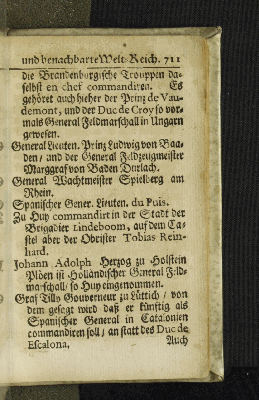 und benachbarte Welt-Reich. 711
die Brandenburgische Trouppen da-
selbst en chef commandiren. Es
gehöret auch hieher der Prinz de Vau-
demont, und der Duc de Croy so vor-
mals General Feldmarschall in Ungarn
gewesen.
General Lieuten. Prinz Ludwig von Baa-
den/ und der General Feldzeugmeister
Marggraf von Baden Durlach.
General Wachtmeister Spielberg am
Rhein.
Spanischer Gener. Lieuten. du Puis.
Zu Huy commandirt in der Stadt der
Brigadier Lindeboom, auf dem Ca-
stel aber der Obrister Tobias Rein-
hard.
Johann Adolph Herzog zu Holstein
Plöen ist Holländischer General Feld-
marschall/ so Huy eingenommen.
Graf Tilly Gouverneur zu Lüttich/ von
dem gesagt wird daß er künftig als
Spanischer General in Catalonien
commandiren soll/ an statt des Duc de
Escalona,
Auch